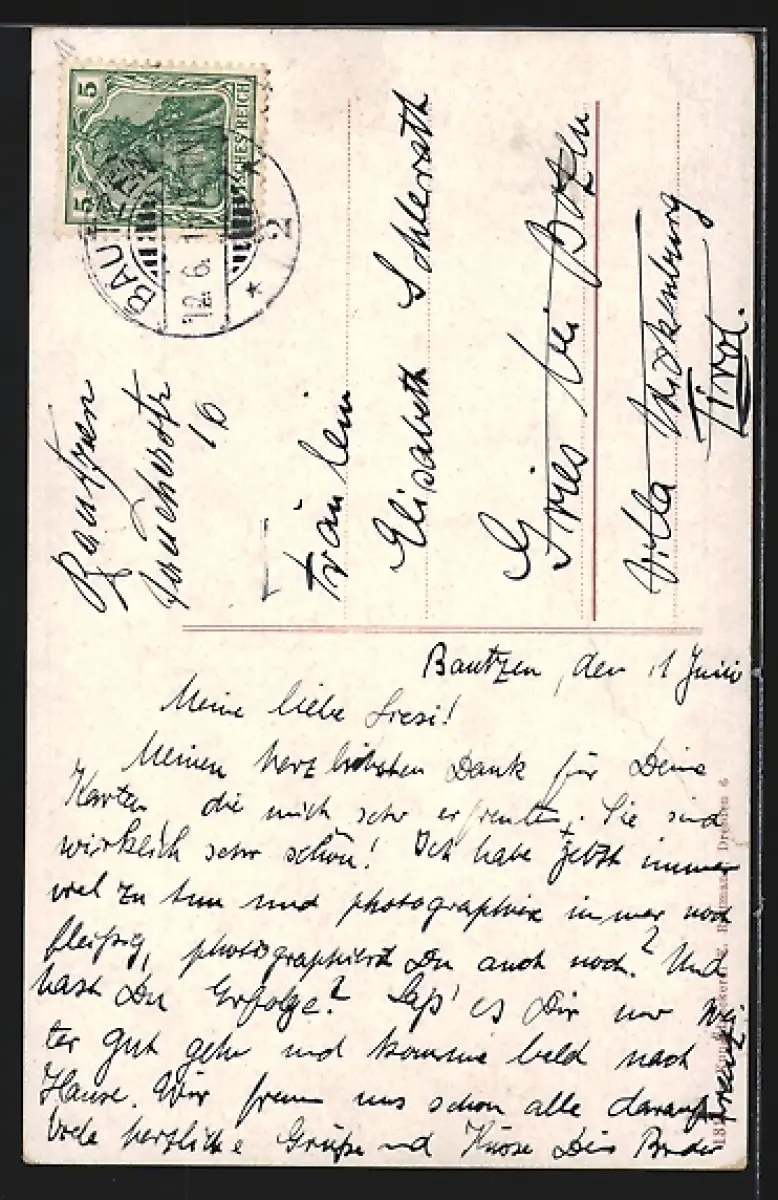 5
5
DEUTSCHES REICH
BAUTZEN
12.6.1
* 2
Bautzen
16
Fräulein
Elisabeth Schlerath
Gries bei Bozen
Villa
Tirol.
Bautzen, den 11 Juni
Meine liebe Liesi!
Meinen herzlichsten Dank für Deine
Karten, die mich sehr erfreuten. Sie sind
wirklich sehr schön! Ich habe jetzt immer
viel zu tun und photographire immer noch
fleißig, photographierst Du auch noch? Und
hast Du Erfolge? Laß' es Dir nur wei
ter gut gehn und komme bald nach
Hause. Wir freuen uns schon alle darauf
Viele herzliche Grüße und Küsse Dein Bruder
Franz
Dresden 6